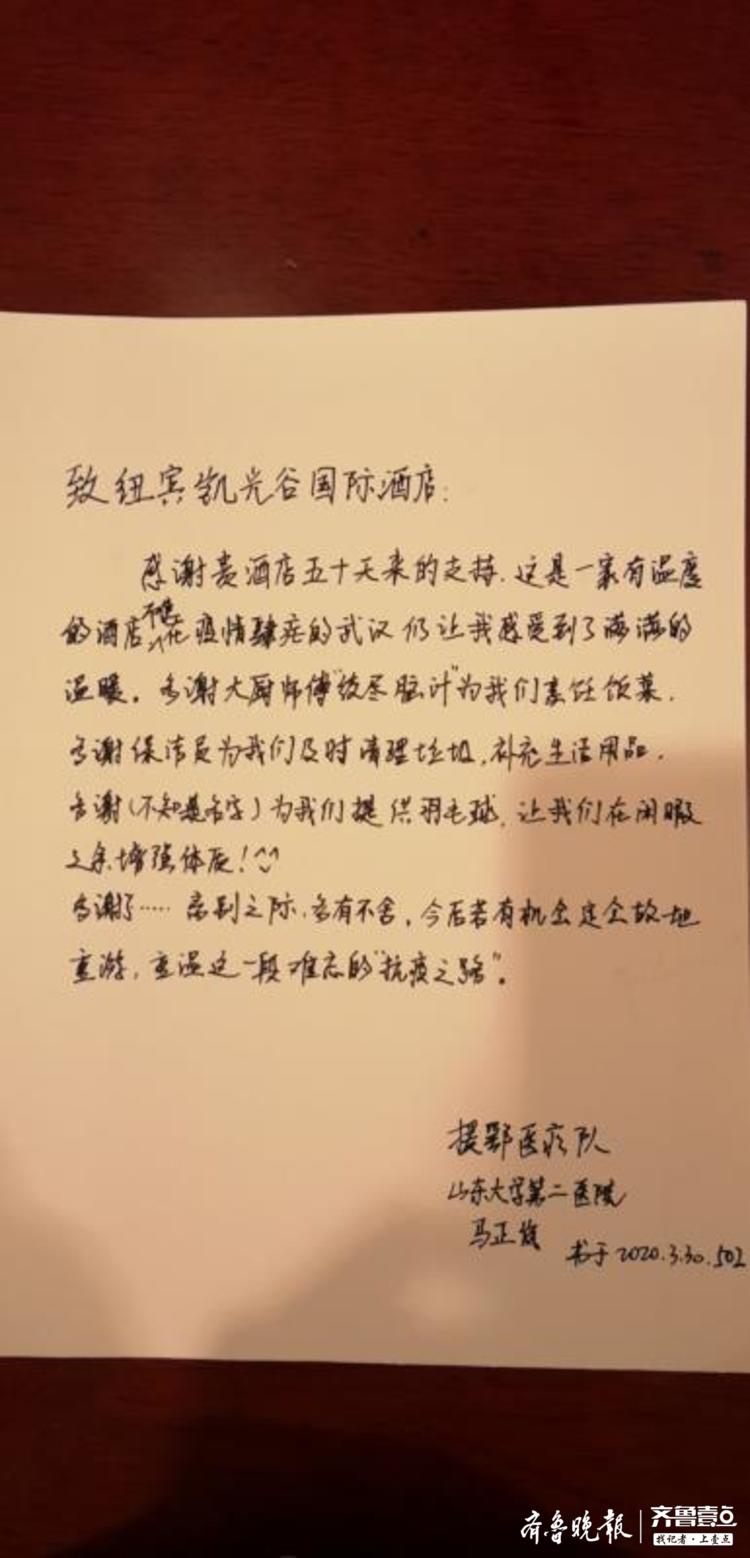 致纽宾凯光谷国际酒店：
感谢贵酒店五十天来的支持.这是一家有温度
的酒店,在疫情肆疟的武汉仍让我感受到了满满的
温暖.多谢大厨师傅"绞尽脑汁"为我们烹饪饭菜.
多谢保洁员为我们及时清理垃圾,补充生活用品.
多谢(不知道名字)为我们提供羽毛球,让我们在闲暇
之余增强体质!^^
多谢了……离别之际,多有不舍,今后若有机会定会故地
重游,重温这一段难忘的"抗疫之路".
援鄂医疗队
山东大学第二医院
马正
书于2020.3.30.502
齐鲁晚报 齐鲁壹点
找记者·上壹点